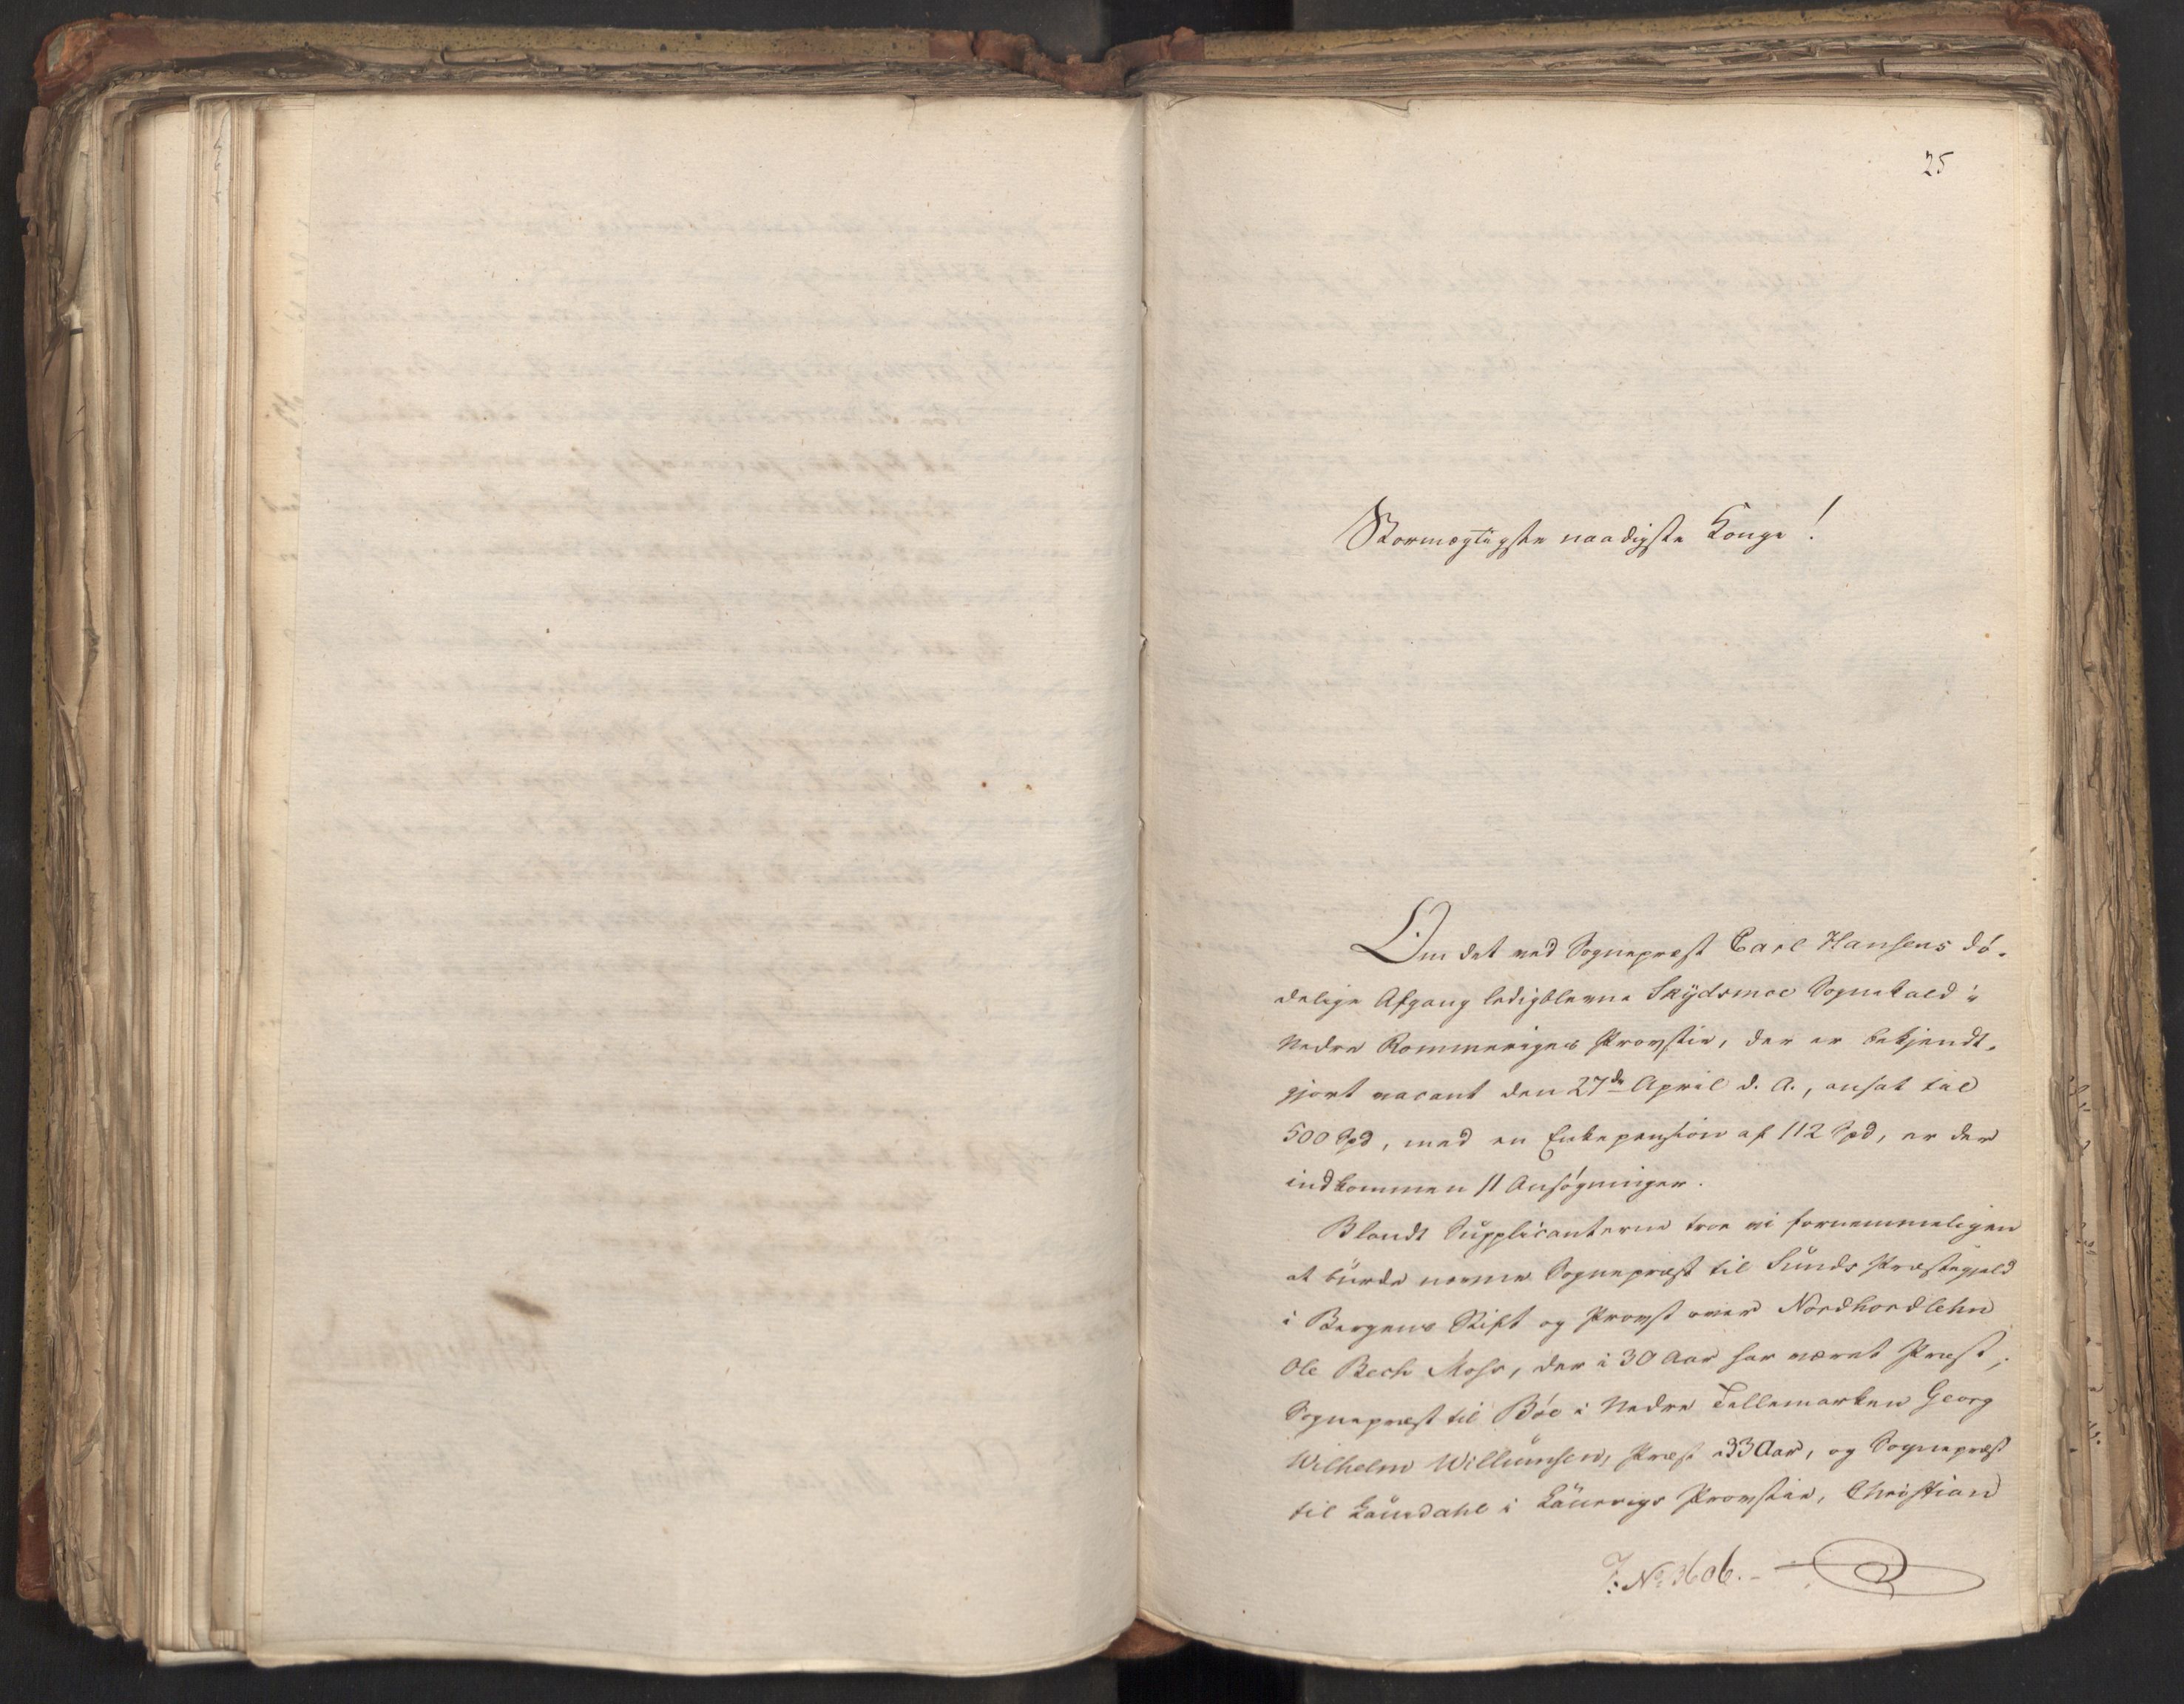 25
Stormægtigste naadigste Konge!
Om det ved Sognepræst Carl Hansens dö-
delige Afgang ledigblevne Skydsmoe Sognekald i
Nedre Rommeriges Provstie, der er bekjendt-
gjort vacant den 27de April d. A., ansat til
500 Spd, med en Enkepension af 112 Spd, er der
indkommen 11 Ansögninger.
Blandt Supplicanterne troe vi fornemmeligen
at burde nævne Sognepræst til Sunds Præstegjeld
i Bergens Stift og Provst over Nordhordlehn
Ole Bech Mohr, der i 30 Aar har været Præst,
Sognepræst til Böe i Nedre Tellemarken Georg
Wilhelm Willumsen, Præst i 33 Aar, og Sognepræst
til Laurdahl i Laurvigs Provstie, Christian
J: No 3606.